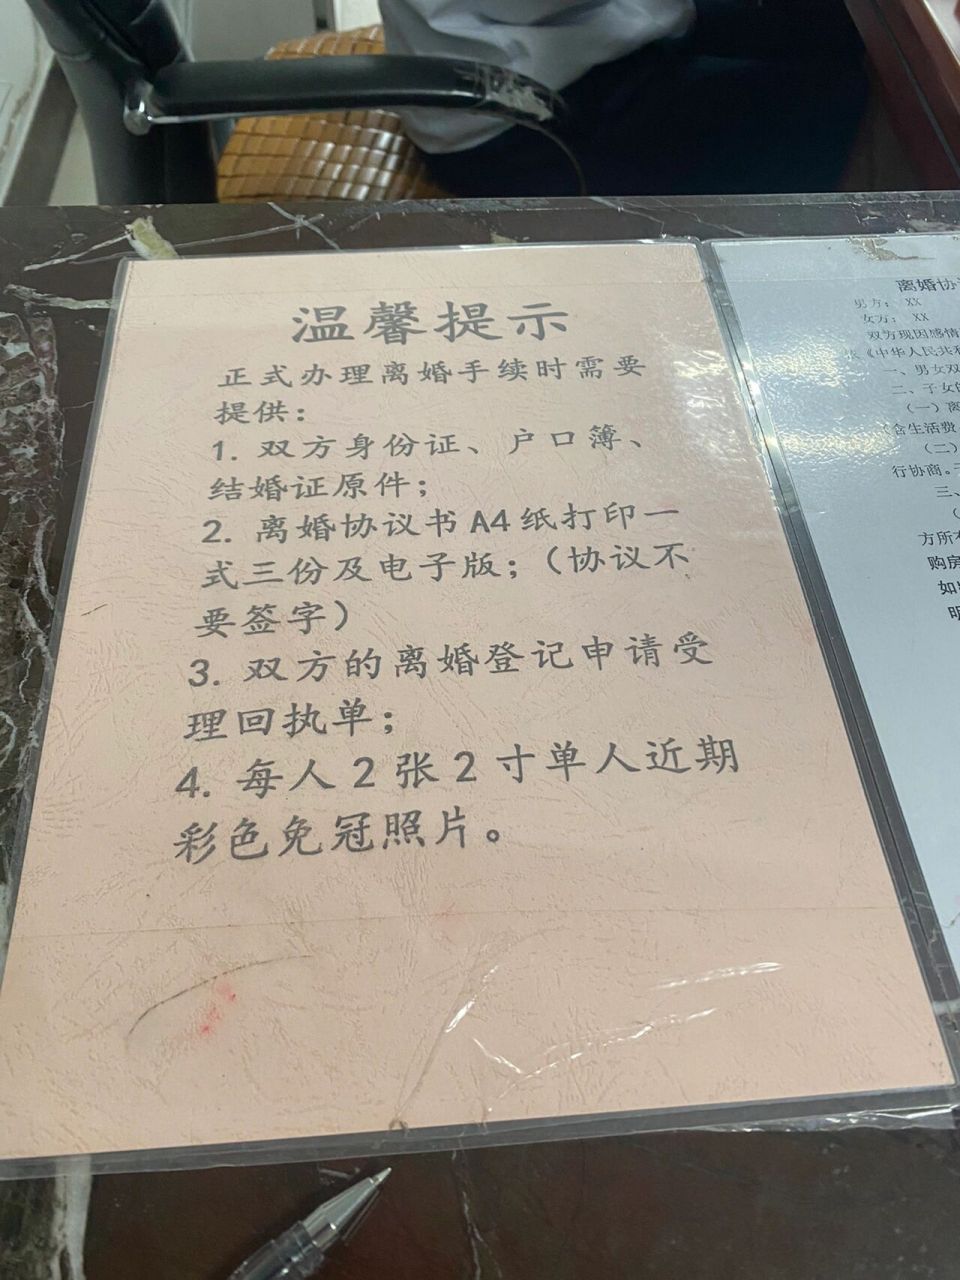 温馨提示
正式办理离婚手续时需要
提供：
1. 双方身份证、户口簿、
结婚证原件；
2. 离婚协议书A4纸打印一
式三份及电子版；（协议不
要签字）
3. 双方的离婚登记申请受
理回执单；
4. 每人2张2寸单人近期
彩色免冠照片。
离婚协
男方： XX
女方： XX
双方现因感情
《中华人民共和
一、男女双
二、子女
（一）离
（含生活费
（二）
行协商。
三、
（
方所
购房
如
明